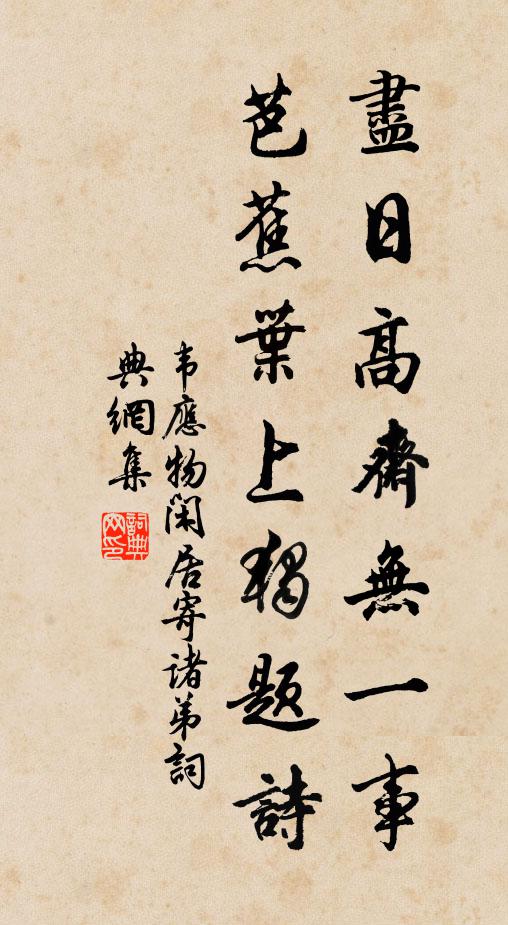 盡日高齋無一事
芭蕉葉上獨題詩
韦應物閑居寄诸弟詞
典網集
詞典網印